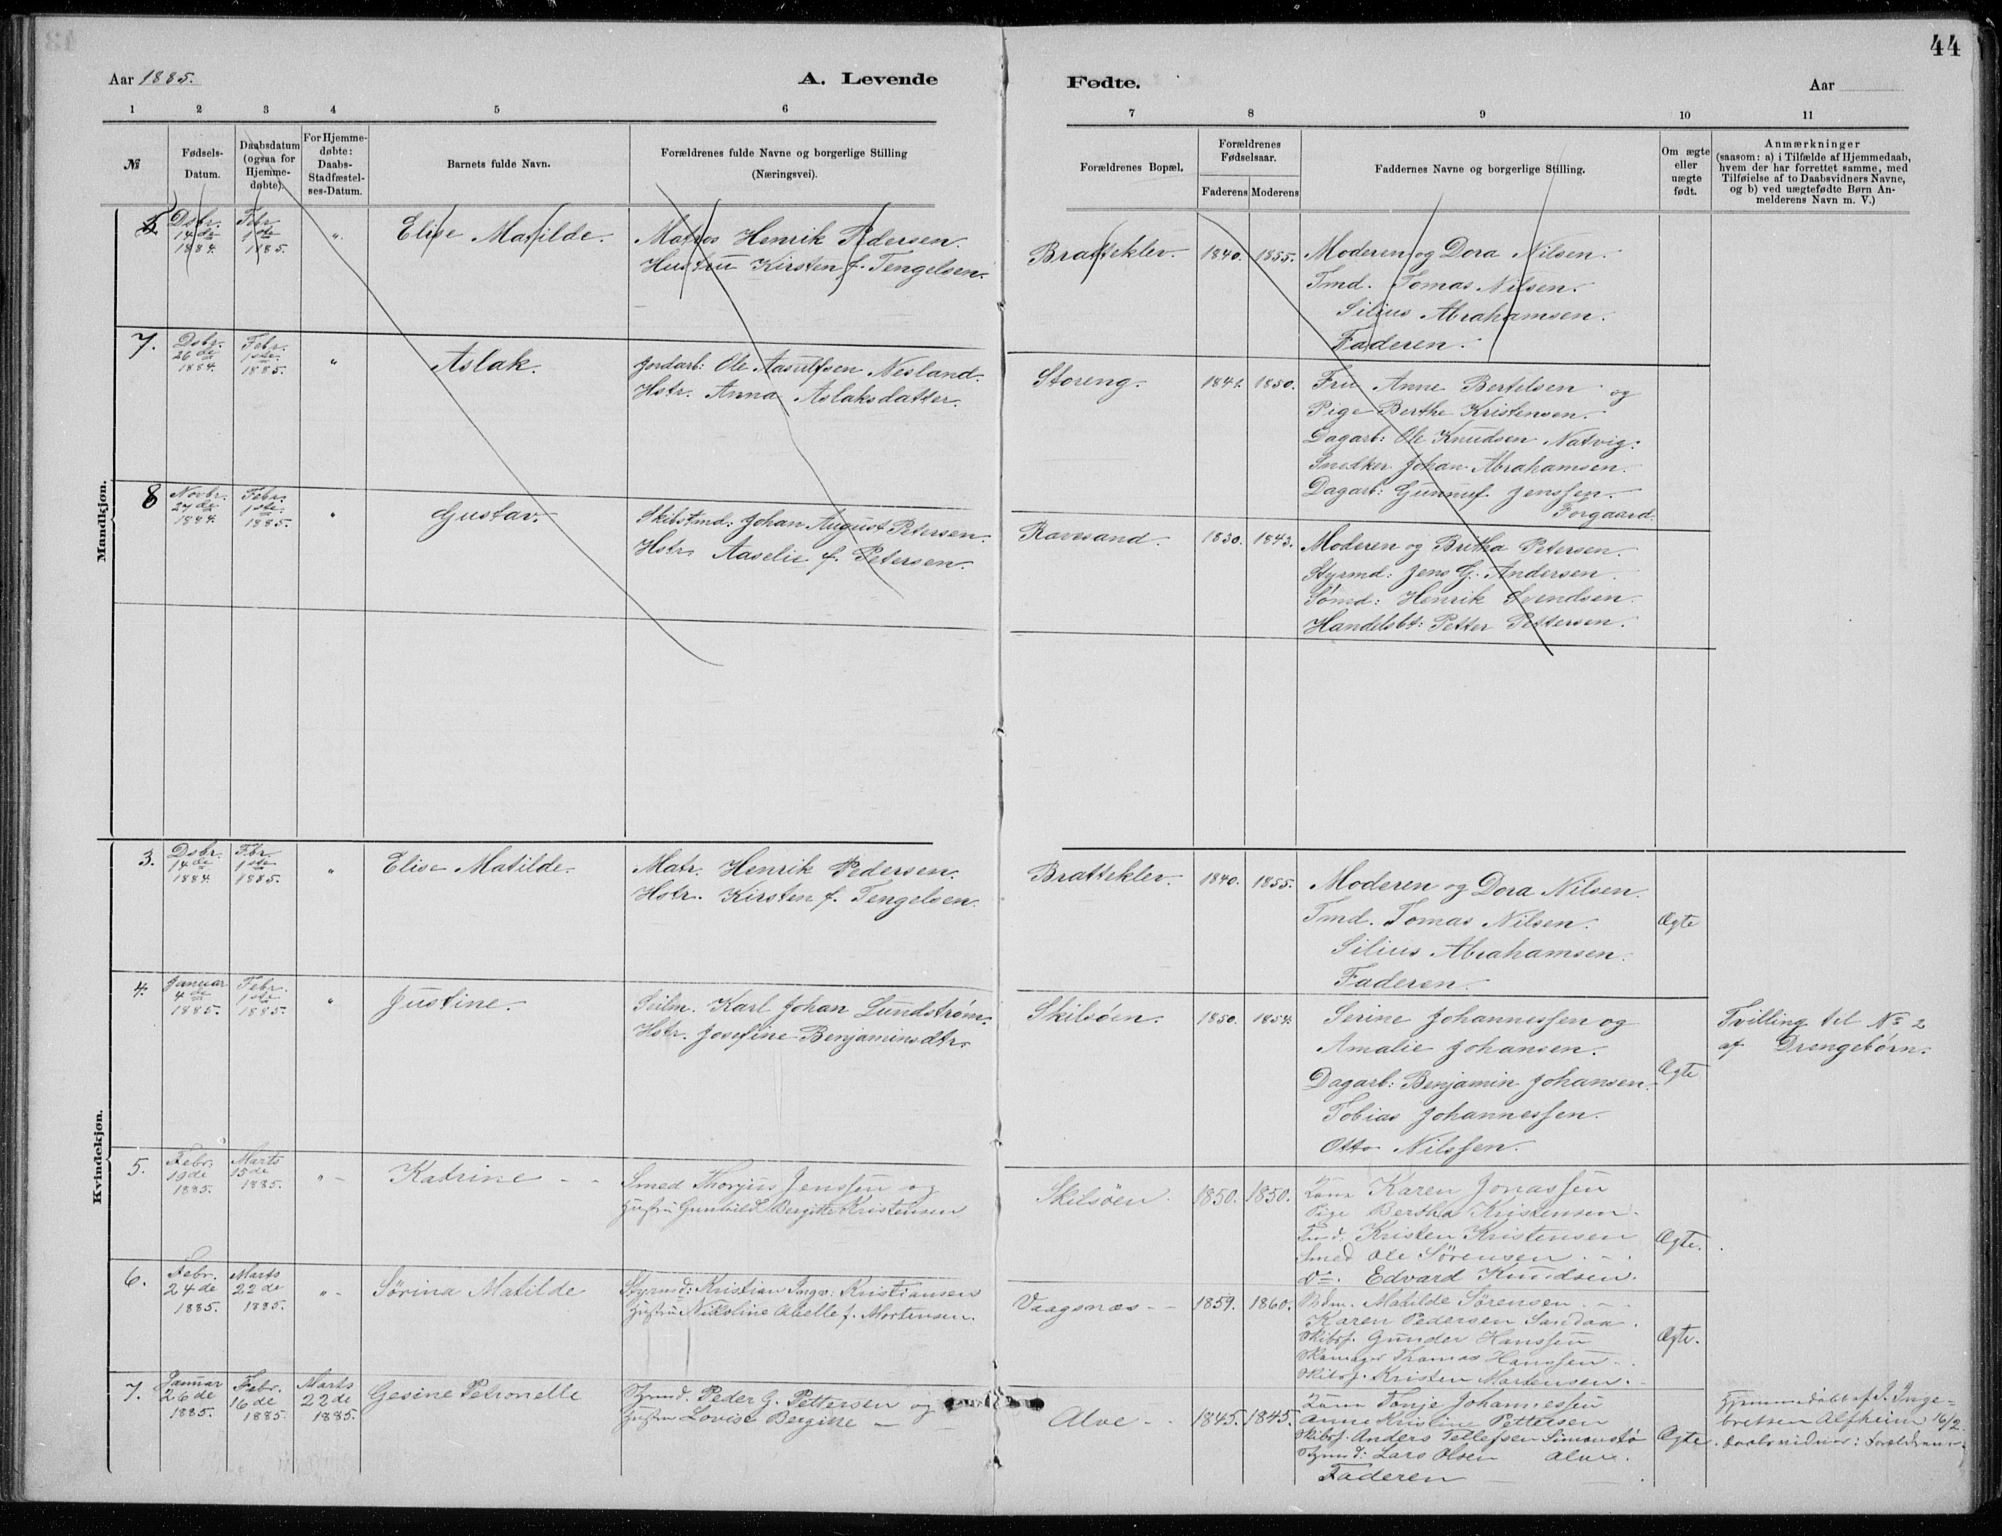 44
Aar 1885.
A. Levende
Fødte.
Aar
1 2 3 4 5 6 7 8 9 10 11
№
Fødsels-
Datum.
Daabsdatum
(ogsaa for
Hjemme-
døbte).
For Hjemme-
døbte:
Daabs-
Stadfæstel-
ses-Datum.
Barnets fulde Navn.
Forældrenes fulde Navne og borgerlige Stilling
(Næringsvei).
Forældrenes Bopæl.
Forældrenes
Fødselsaar.
Faderens Moderens
Faddernes Navne og borgerlige Stilling.
Om ægte
eller
uægte
født.
Anmærkninger
(saasom: a) i Tilfælde af Hjemmedaab,
hvem der har forrettet samme, med
Tilføielse af to Daabsvidners Navne,
og b) ved uægtefødte Børn An-
melderens Navn m. V.)
Mandkjøn.
Dsbr.
14de
1884.
Febr.
1ste
1885.
"
Elise Matilde.
Matros Henrik Pedersen.
Hustru Kirsten f. Tengelsen.
Bratteklev.
1840. 1855.
Moderen og Dora Nilsen.
Tmd. Tomas Nilsen.
Silius Abrahamsen.
Faderen.
7.
Dsbr.
26de
1884.
Febr.
1ste.
1885.
"
Aslak.
Jordarb: Ole Aasulfsen Nesland.
Hstr. Anna Aslaksdatter.
Storeng.
1841. 1850.
Fru Anne Bertelsen og
Pige Berthe Kristensen.
Dagarb: Ole Knudsen Natvig:
Snedker Johan Abrahamsen.
Dagarb: Gunnuf Jenssen.
Forgaard.
8
Novbr.
27de
1884.
Febr.
1ste.
1885.
"
Gustav.
Skibstmd: Johan August Petersen.
Hstr. Aaselie f. Petersen.
Ravesand.
1830. 1843.
Moderen og Bertha Petersen.
Styrmd: Jens G. Andersen.
Sømd: Henrik Svendsen.
Handelsbt: Petter Pettersen.
Kvindekjøn.
3.
Dsbr.
14de
1884.
Fbr.
1ste
1885.
"
Elise Matilde.
Matr. Henrik Pedersen.
Hstr. Kirsten f. Tengelsen.
Bratteklev.
1840. 1855.
Moderen og Dora Nilsen.
Tmd. Tomas Nilsen.
Silius Abrahamsen.
Faderen.
Ægte
4.
Januar
4de
1885.
Febr.
1ste
1885.
"
Justine.
Seilm. Karl Johan Lundstrøm.
Hstr. Josefine Benjaminsdtr.
Skilsøen.
1850. 1854.
Serine Johannessen og
Amalie Johansen.
Dagarb: Benjamin Johansen.
Tobias Johannessen.
Otto Nilssen.
Ægte
Tvilling til No 2
af Drengebørn.
5.
Febr.
19de
1885.
Marts
15de
1885.
" -
Katrine - -
Smed Thorjus Jenssen og
Hustru Gunhild Bergitte Kristensen
Skilsøen.
1850. 1850.
Karen Jonassen
Pige Bertha Kristensen.
Tmd. Kristen Kristensen
Smed Ole Sørensen - .
Do. Edvard Knudsen.
Ægte.
6.
Febr.
24de
1885.
Marts
22de
1885.
" -
Sørina Matilde
Styrmd: Kristian Ingv: Kristiansen
Hustru Nikoline Abelle f. Mortensen.
Vaagsnæs - -
1859. 1860.
Matilde Sørensen - -
Karen Pedersen Sandaa.
Skibsf. Gunder Hanssen
Thomas Hanssen - .
Skibsf. Kristen Mortensen. -
Ægte.
7.
Januar
26de
1885.
Febr.
16de
1885.
Marts
22de
1885.
Gesine Petronelle
Styrmd. Peder G. Pettersen og
Hustru Lovise Bergitte -
Alve - -
1845. 1845.
Tonje Johannessen
Anne Kristine Pettersen
Skibsf. Anders Tellefsen Simonstø
Styrmd: Lars Olsen Alve.
Faderen -
Ægte
Hjemmedøbt af J. Inge-
bretsen Alfheim 16/2.
Daabsvidner: Forældrene